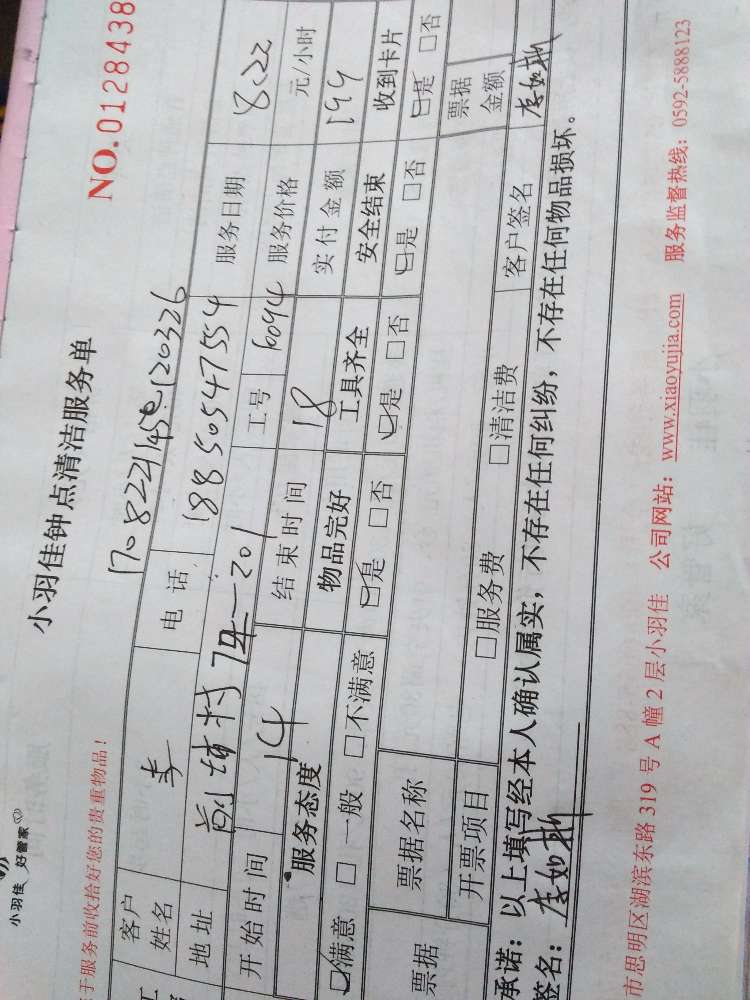 小羽佳 好管家
小羽佳钟点清洁服务单
NO.0128438
于服务前收拾好您的贵重物品!
1708221450120326
客户姓名 李 电话 18850547554 服务日期 8.22
地址 前埔村 201
工号 6094 服务价格 元/小时
开始时间 14 结束时间 18 实付金额 199
服务态度 物品完好 工具齐全 安全结束 收到卡片
☑满意 □一般 □不满意 ☑是 □否 ☑是 □否 ☑是 □否 ☑是 □否
票据 票据名称 票据金额
开票项目 □服务费 □清洁费 客户签名
承诺:以上填写经本人确认属实,不存在任何纠纷,不存在任何物品损坏。
签名:
市思明区湖滨东路 319 号 A 幢 2 层小羽佳 公司网站:www.xiaoyujia.com 服务监督热线:0592-5888123